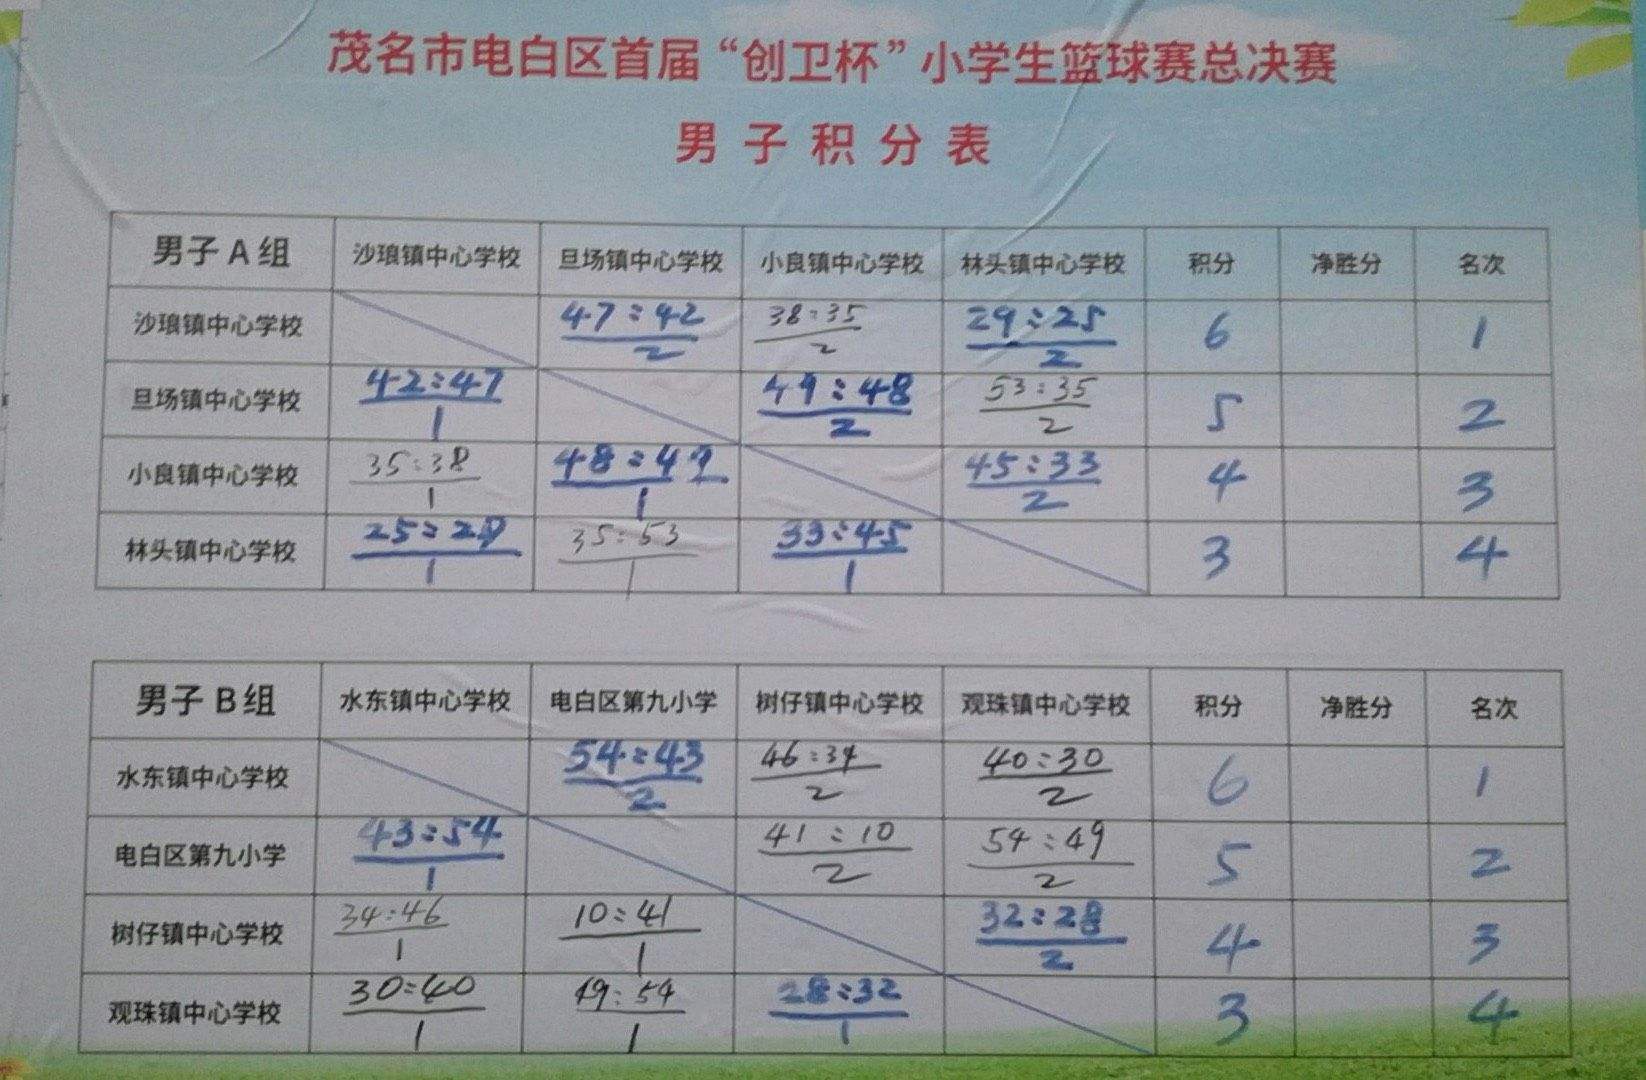 茂名市电白区首届“创卫杯”小学生篮球赛总决赛
男子积分表
男子A组 沙琅镇中心学校 旦场镇中心学校 小良镇中心学校 林头镇中心学校 积分 净胜分 名次
沙琅镇中心学校 47:42 2 38:35 2 29:25 2 6 1
旦场镇中心学校 42:47 1 49:48 2 53:35 2 5 2
小良镇中心学校 35:38 1 48:49 1 45:33 2 4 3
林头镇中心学校 25:29 1 35:53 1 33:45 1 3 4
男子B组 水东镇中心学校 电白区第九小学 树仔镇中心学校 观珠镇中心学校 积分 净胜分 名次
水东镇中心学校 54:43 2 46:34 2 40:30 2 6 1
电白区第九小学 43:54 1 41:10 2 54:49 2 5 2
树仔镇中心学校 34:46 1 10:41 1 32:28 2 4 3
观珠镇中心学校 30:40 1 49:54 1 28:32 1 3 4